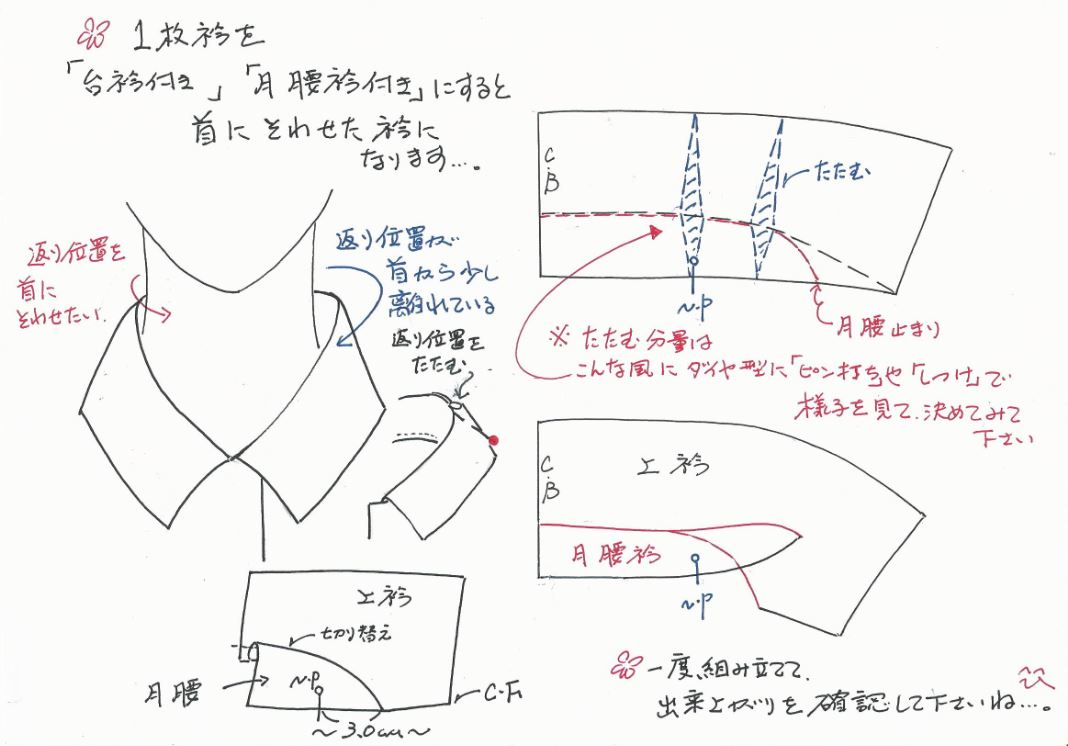 1枚衿を
「台衿付き」「月腰衿付き」にすると
首にそわせた衿に
なります…。
返り位置を
首に
そわせたい.
返り位置が
首から少し
離れている
返り位置を
たたむ
C.B
たたむ
N.P
月腰止まり
※ たたむ分量は
こんな風にダイヤ型に「ピン打ち」や「しつけ」で
様子を見て、決めてみて
下さい
C.B
上衿
月腰衿
N.P
上衿
切り替え
月腰
N.P
C.F
～3.0cm～
一度、組み立てて、
出来上がりを確認して下さいね…。